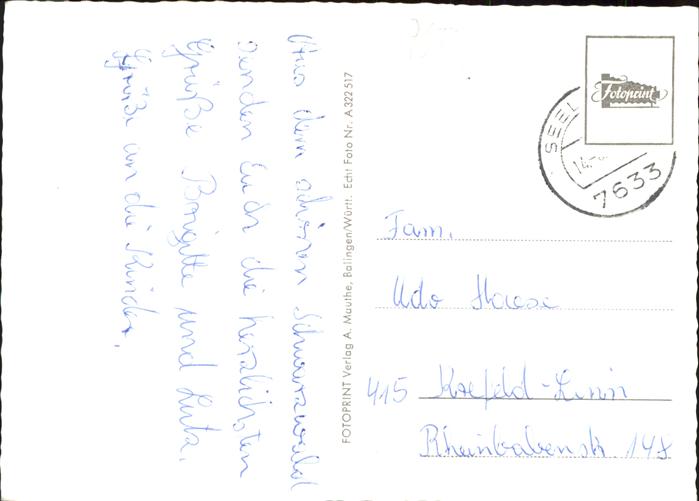 Aus dem schönen Schwarzwald
senden Euch die herzlichsten
Grüße Brigitte und Lutz.
Grüße an die Kinder.
FOTOPRINT Verlag A. Mauthe, Balingen/Württ. Echt Foto Nr. A 322 517
Fotoprint
SEEL
14.
7633
Fam.
Udo Haese
415 Krefeld-Linn
Rheinbabenstr. 148